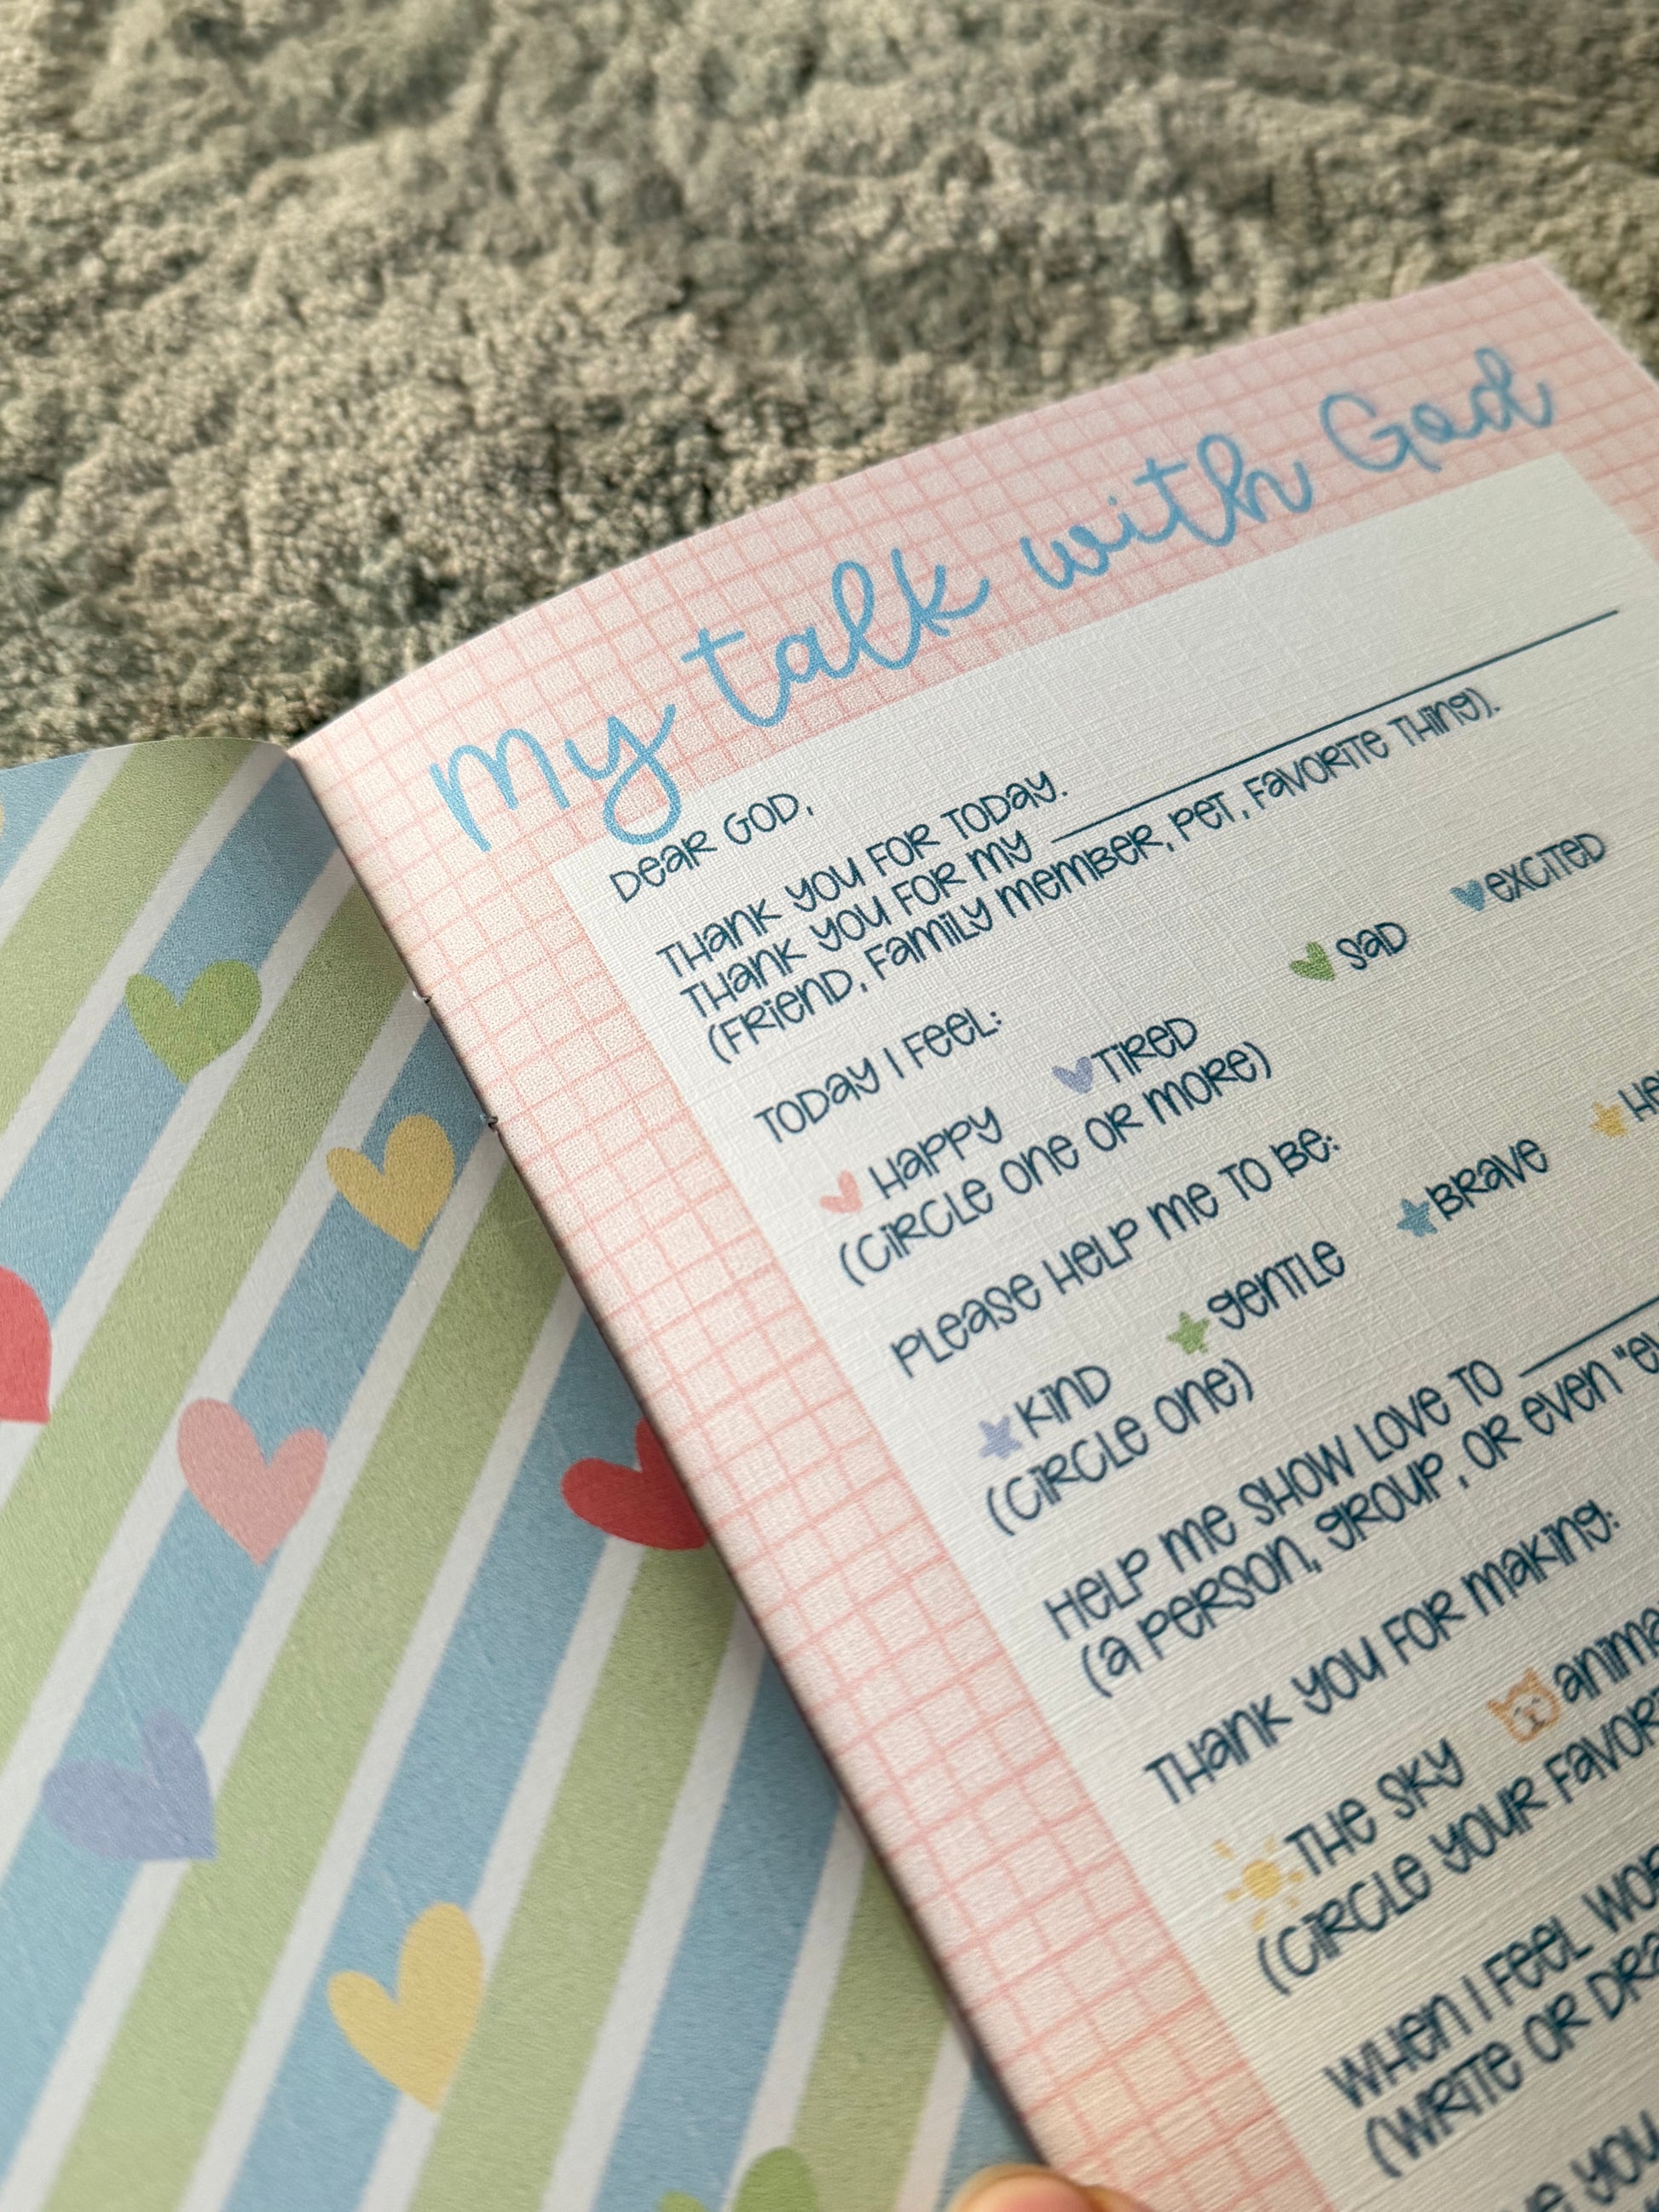 My talk with God
DEAR GOD,
THANK YOU FOR TODAY.
THANK YOU FOR MY
(FRIEND, FAMILY MEMBER, PET, FAVORITE THING).
TODAY I FEEL:
HAPPY TIRED SAD EXCITED
(CIRCLE ONE OR MORE)
PLEASE HELP ME TO BE:
KIND GENTLE BRAVE
(CIRCLE ONE)
HELP ME SHOW LOVE TO
(A PERSON, GROUP, OR EVEN
THANK YOU FOR MAKING:
THE SKY
(CIRCLE YOUR
WHEN I FEEL
(WRITE OR
YOU